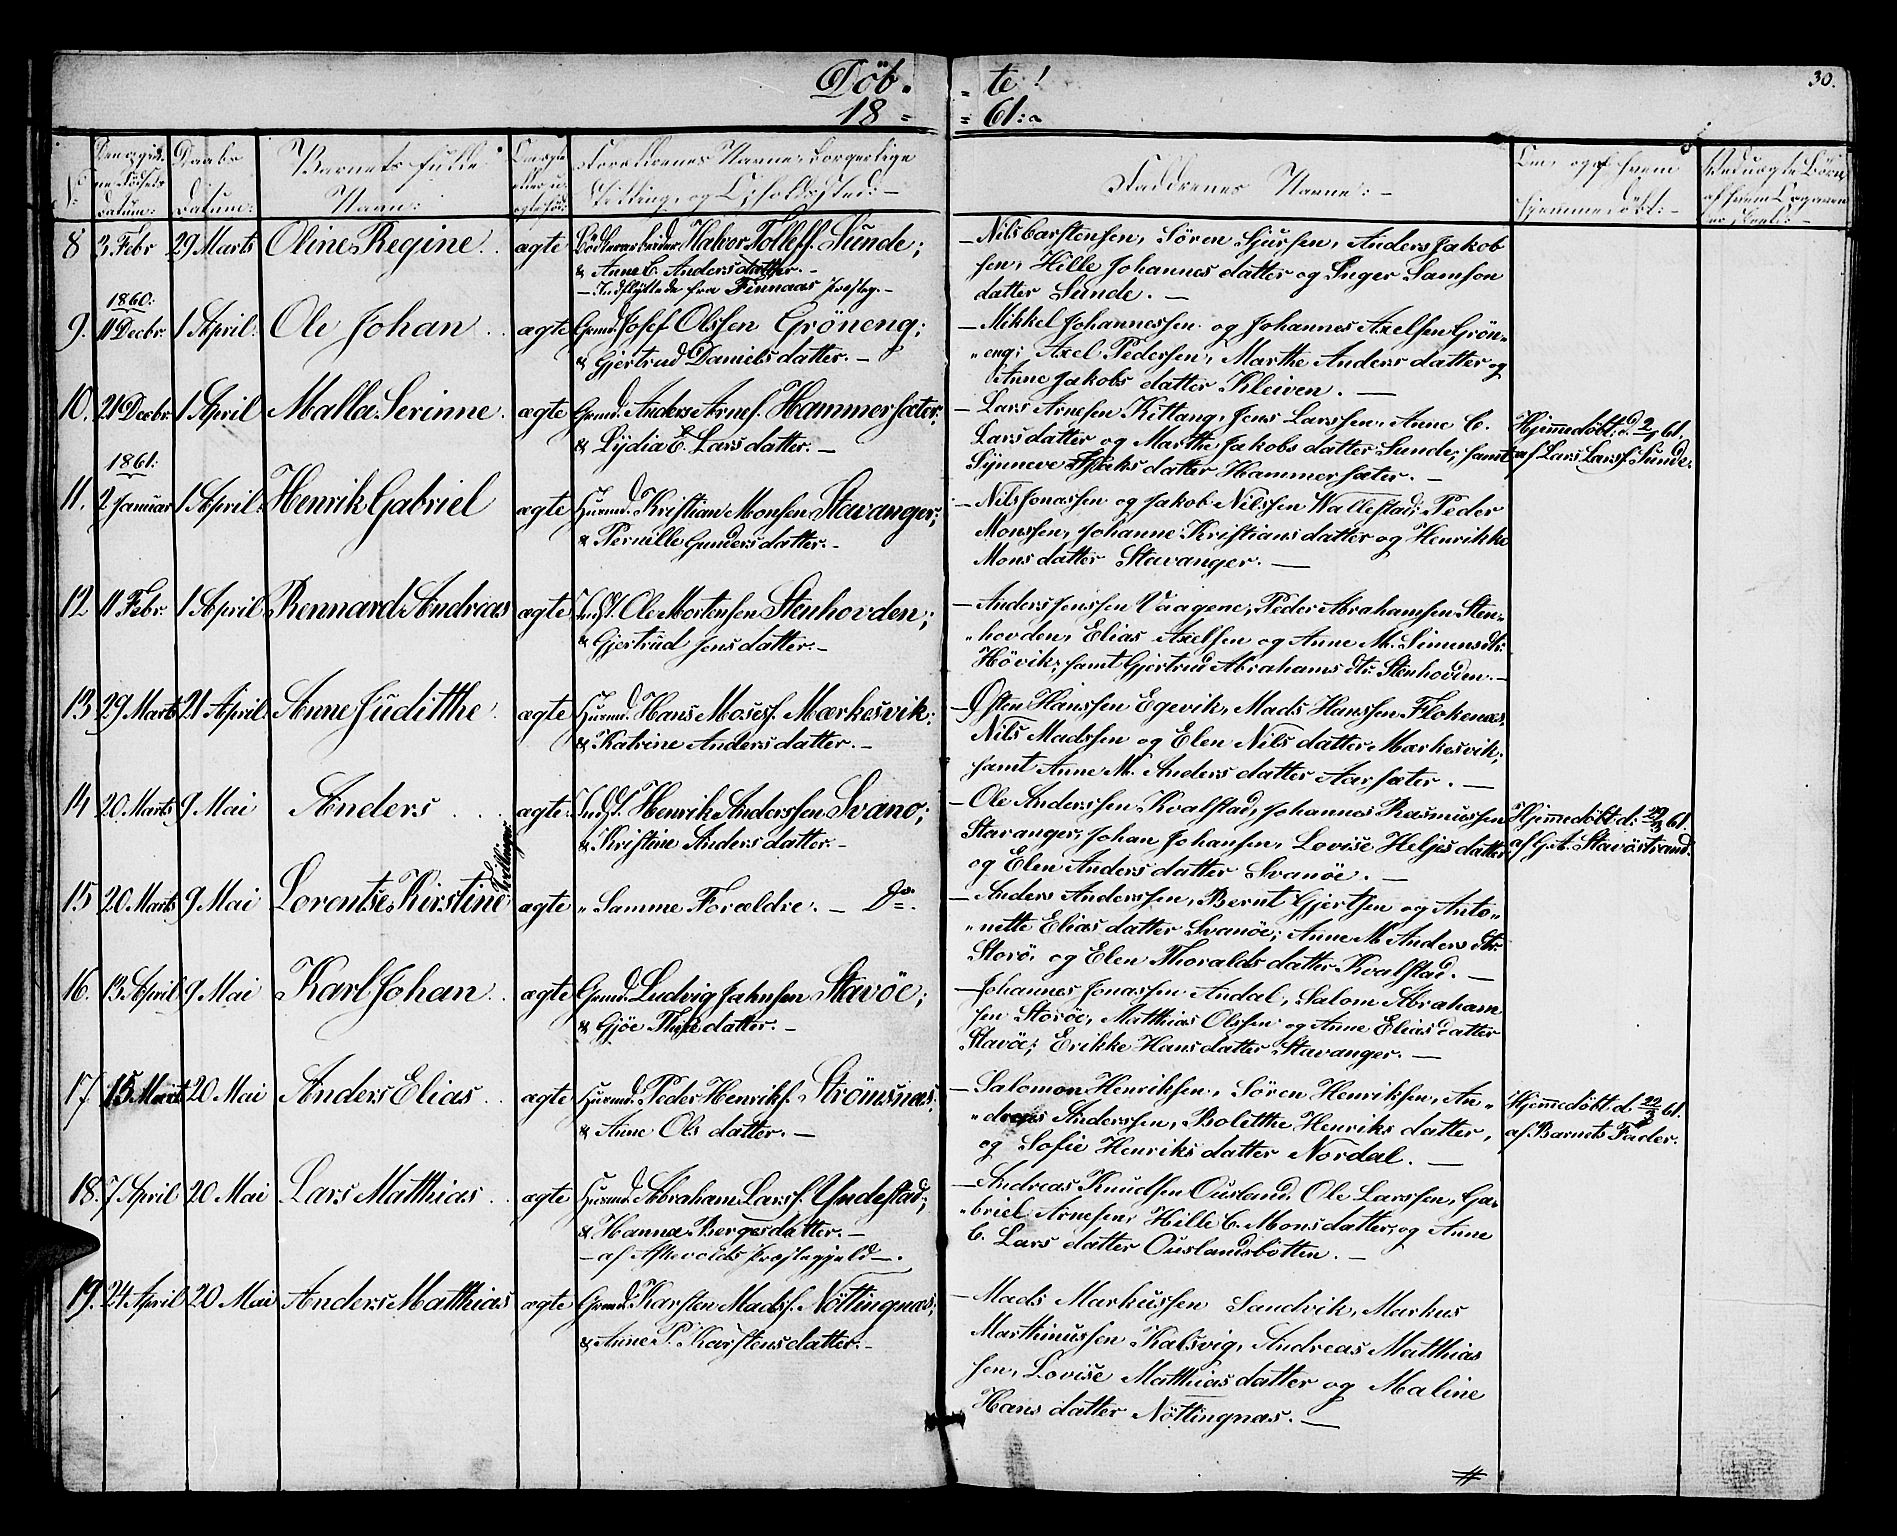 Döb. - te!
18 = = 61:
30.
No:
Datum:
Daabs Datum:
Barnets fulde Navn:
Forældrenes Navne, borgerlige Stilling, og Opholdssted: -
Faddrenes Navne: -
Om, og af hvem hjemmedöbt: -
8 3 Febr 29 Marts Oline Regine. ægte Halvor Tolleff. Sunde;
& Anne C. Andersdatter. -
- Indflyttede fra Finnaas Presteg. -
- Nils Carstensen, Sören Sjurssen, Anders Jakob
sen, Hille Johannes datter og Inger Samson
datter Sunde. -
1860:
9. 11 Decbr. 1 April. Ole Johan. ægte Grmd. Josef Olssen Gröneng;
& Gjertrud Daniels datter. -
- Mikkel Johannessen og Johannes Axelsen Grön-
"eng; Axel Pederssen, Marthe Anders datter og
Anne Jakobs datter Kleiven. -
10. 21 Decbr. 1 April Malla Serinne. ægte Grmd. Anders Arnes. Hammersæter.
& Lydia E. Lars datter. -
- Lars Arnesen Kittang, Jens Larssen, Anne C.
Larsdatter og Marthe Jakobs datter Sunde, samt
Synneve datter Hammersæter. -
Hjemmedöbt: d. 2/1 61,
af Lars Larss. Sunde.
1861:
11. 2 Januar 1 April. Henrik Gabriel ægte Husmd. Kristian Monsen Stavanger;
& Pernille Gunders datter. -
- Nils Jonassen og Jakob Nilssen Wallestad; Peder
Monssen, Johanne Kristians datter og Henrikke
Mons datter Stavanger. -
12 11 Febr. 1 April. Rennard Andreas ægte Inds. Ole Mortensen Stenhovden;
& Gjertrud Jens datter. -
- Anders Jenssen Vaagene, Peder Abrahamsen Sten-
"hovden, Elias Axelsen og Anne M. Simensdtr.
Hövik; samt Gjertrud Abrahams dtr. Stenhovden. -
13 29 Marts 21 April. Anne Juditthe. ægte Husmd. Hans Moses. Mærkesvik:
& Katrine Anders datter. -
- Östen Hanssen Egevik, Mads Hanssen Flokenæs,
Nils Madssen og Elen Nils datter Mærkesvik;
samt Anne M. Anders datter Aarsæter. -
14 20 Marts 9 Mai Anders. ægte. Inds. Henrik Anderssen Svanö;
& Kristine Anders datter. -
- Ole Anderssen Kvalstad, Johannes Rasmussen
Stavanger, Johan Johansen, Lovise Heljes datter
og Elen Anders datter Svanöe. -
Hjemmedöbt d: 29/3 61.
af G. A. Stavöstrand.
Tvillinger
15 20 Marts 9 Mai Lorentse Kirstine ægte " Samme Forældre. - Do.
- Anders Anderssen, Bernt Gjertsen og Anto-
"nette Elias datter Svanöe; Anne M. Anders dtr.
Storö, og Elen Thoralds datter Kvalstad. -
16. 13 April 9 Mai Karl Johan. ægte Grmd. Ludvig Jahnsen Stavöe;
& Gjöe datter. -
- Johannes Jonassen Andal, Salom Abraham
sen Storöe, Matthias Olssen og Anne Elias datter
Stavöe; Erikke Hans datter Stavanger. -
17 15 Marts 20 Mai Anders Elias. ægte Husmd. Peder Henriks. Strömsnæs.
& Anne Ols datter. -
- Salomon Henriksen, Sören Henriksen, An-
"dreas Anderssen, Bolitthe Henriks datter,
og Sofie Henriks datter Nordal. -
Hjemmedöbt d. 22/3 61.
af Barnets Fader.
18. 7 April 20 Mai Lars Matthias. ægte Husmd. Abraham Larss. Yndestad;
& Hanna Berges datter. -
- af Askevolds Præstegjeld -.
- Andreas Knudsen Ousland, Ole Larssen, Ga-
"briel Arnesen, Hille C. Mons datter, og Anne
C. Lars datter Ouslandsbotten. -
19. 24 April 20 Mai Anders Matthias ægte Grmd. Karsten Mads. Nöttingnæs;
& Anne P. Karstens datter. -
- Mads Markussen Sandvik, Markus
Marthinussen Kalsvig, Andreas Matthias
sen, Lovise Matthias datter og Maline
Hans datter Nöttingnæs. -
#